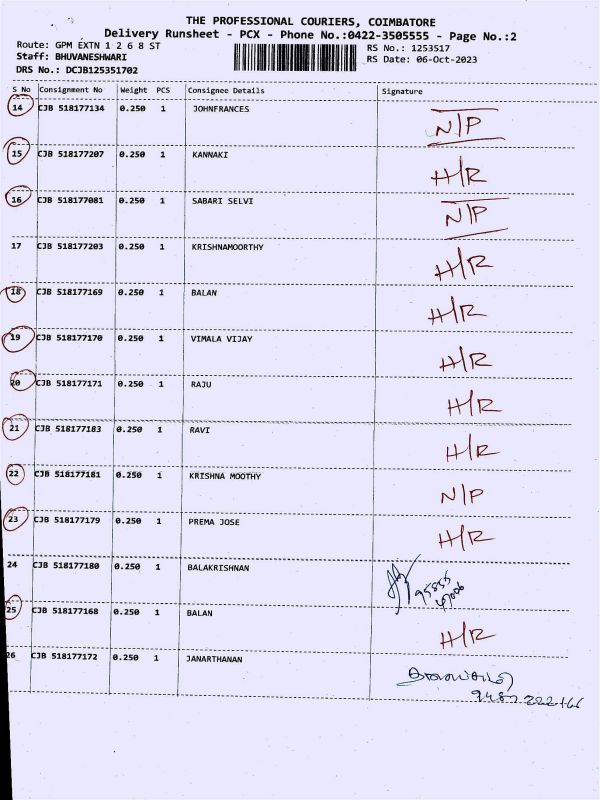 THE PROFESSIONAL COURIERS, COIMBATORE
Delivery Runsheet - PCX - Phone No.:0422-3505555 - Page No.:2
Route: GPM EXTN 1 2 6 8 ST RS No.: 1253517
Staff: BHUVANESHWARI RS Date: 06-Oct-2023
DRS No.: DCJB125351702
S No Consignment No Weight PCS Consignee Details Signature
14 CJB 518177134 0.250 1 JOHNFRANCES N/P
15 CJB 518177207 0.250 1 KANNAKI H/R
16 CJB 518177081 0.250 1 SABARI SELVI N/P
17 CJB 518177203 0.250 1 KRISHNAMOORTHY H/R
18 CJB 518177169 0.250 1 BALAN H/R
19 CJB 518177170 0.250 1 VIMALA VIJAY H/R
20 CJB 518177171 0.250 1 RAJU H/R
21 CJB 518177183 0.250 1 RAVI H/R
22 CJB 518177181 0.250 1 KRISHNA MOOTHY N/P
23 CJB 518177179 0.250 1 PREMA JOSE H/R
24 CJB 518177180 0.250 1 BALAKRISHNAN
25 CJB 518177168 0.250 1 BALAN H/R
26 CJB 518177172 0.250 1 JANARTHANAN